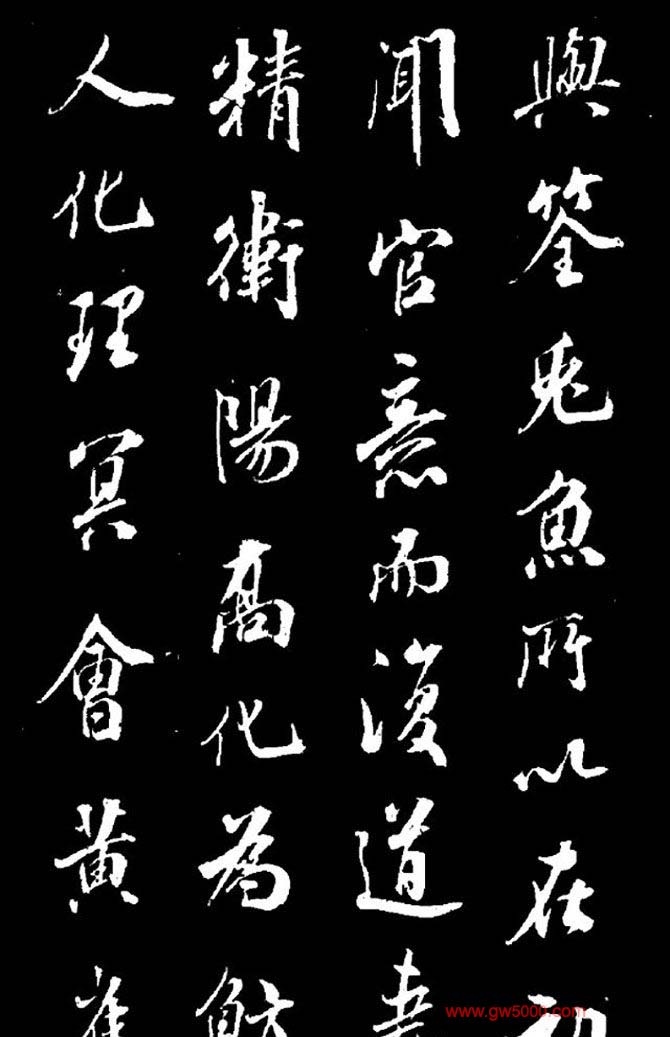 與筌兎魚所以在
聞官意而復道
精衛陽高化為
人化理冥會黃雀
www.gw5000.com